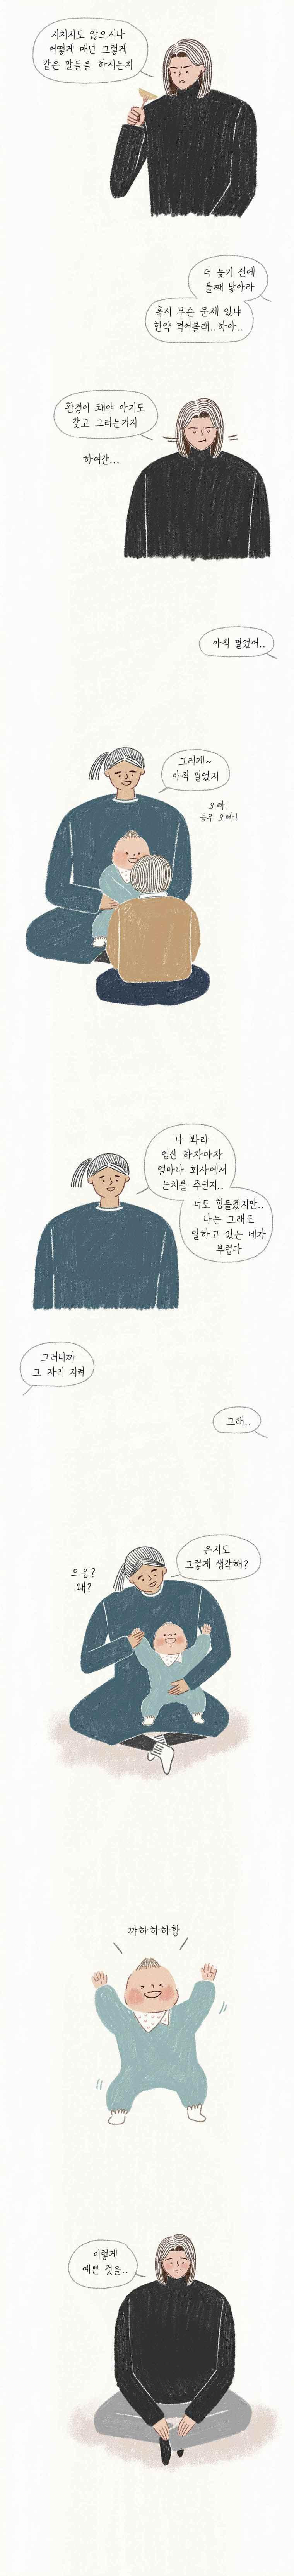 지치지도 않으시나
어떻게 매년 그렇게
같은 말들을 하시는지
더 늦기 전에
둘째 낳아라
혹시 무슨 문제 있냐
한약 먹어볼래..하아..
환경이 돼야 아기도
갖고 그러는거지
하여간...
아직 멀었어..
그러게~
아직 멀었지
오빠!
동우 오빠!
나 봐라
임신 하자마자
얼마나 회사에서
눈치를 주던지..
너도 힘들겠지만..
나는 그래도
일하고 있는 네가
부럽다
그러니까
그 자리 지켜
그래..
은지도
그렇게 생각해?
으응?
왜?
꺄하하하항
이렇게
예쁜 것을..